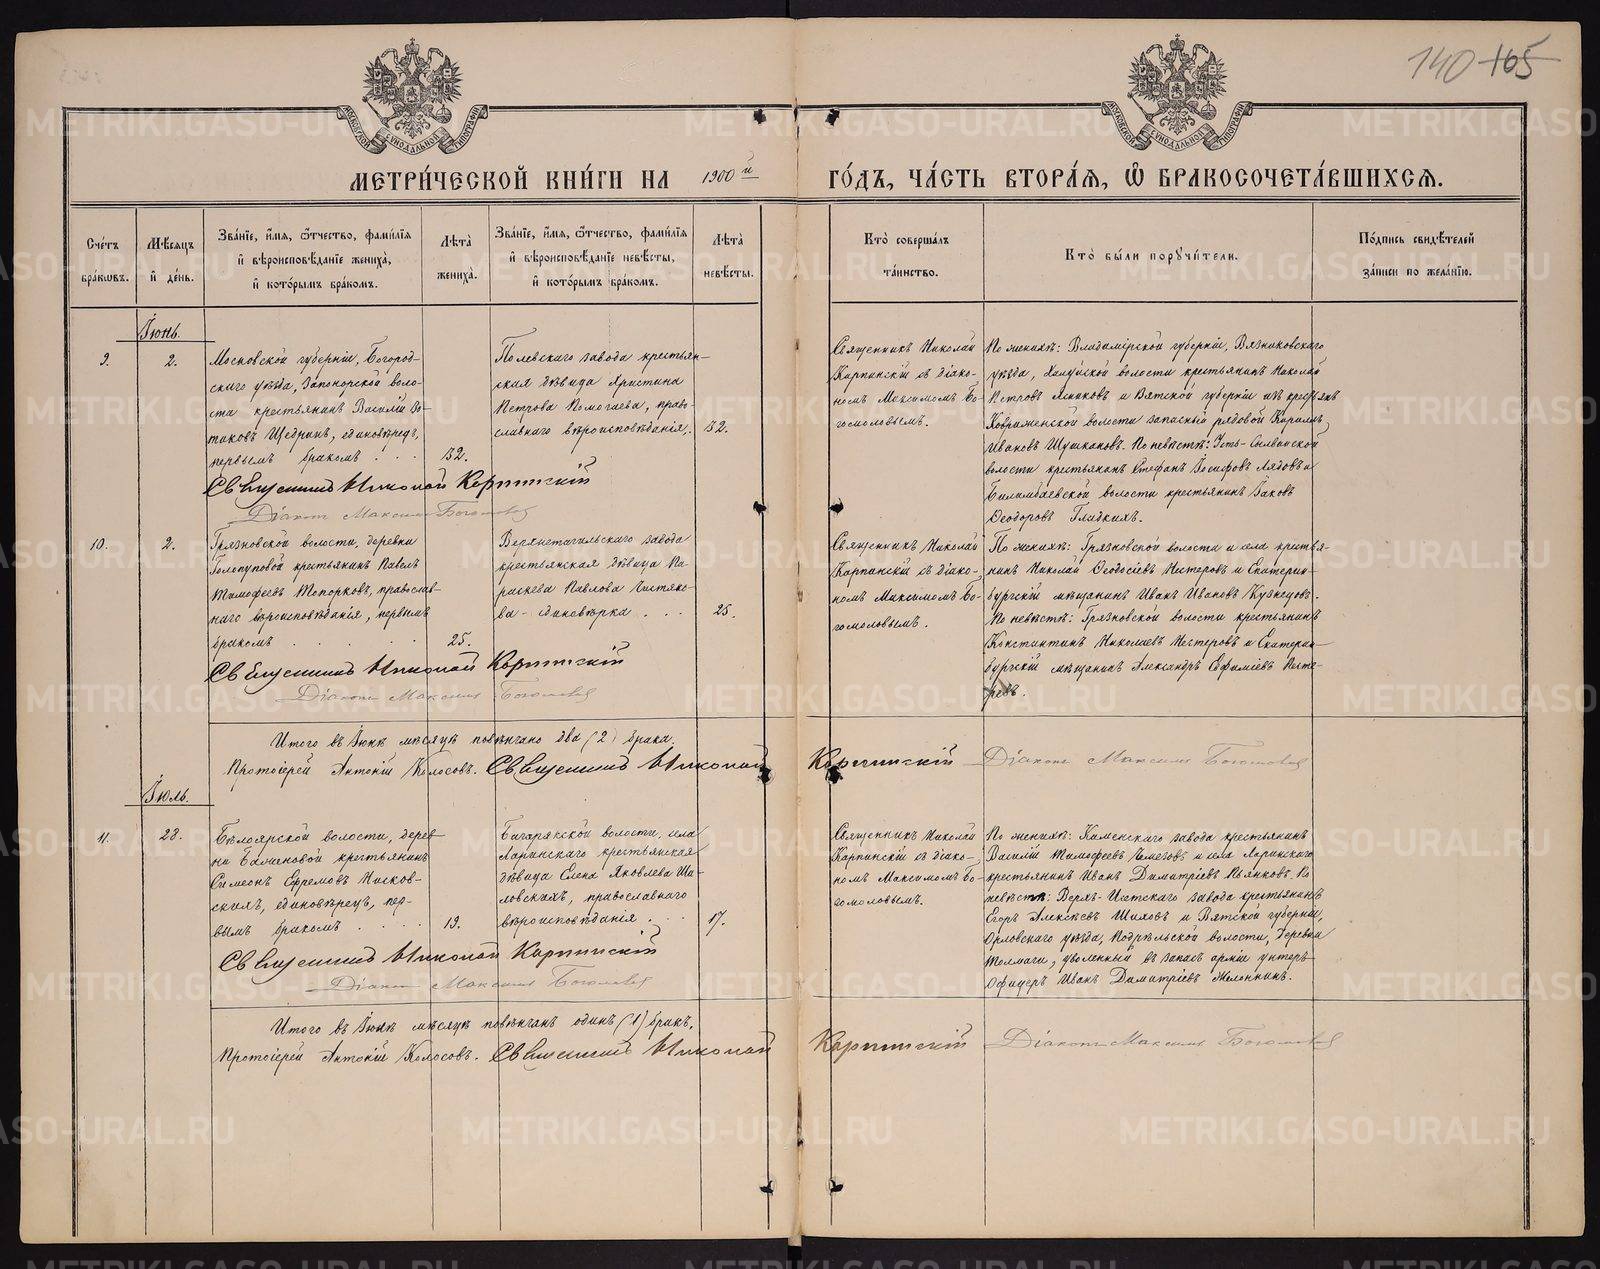 140 165
МЕТРИ́ЧЕСКОЙ КНИ́ГИ НА 1900 й ГО́ДЪ, ЧА́СТЬ ВТОРА́Я, Ѽ БРАКОСОЧЕТА́ВШИХСЯ.
Сче́тъ бра́ковъ.
Мѣ́сяцъ и де́нь.
Зва́нїе, и́мя, ѻ҆́тчество, фамилїя
и вѣроисповѣ́данїе жениха̀,
и кото́рымъ бра́комъ.
Лѣта̀ жениха̀.
Зва́нїе, и́мя, ѻ҆́тчество, фамилїя
и вѣроисповѣ́данїе невѣ́сты,
и кото́рымъ бра́комъ.
Лѣта̀ невѣ́сты.
Кто̀ соверша́лъ
та́инство.
Кто̀ бы́ли порꙋчи́тели.
По́дпись свидѣ́телей
за́писи по жела́нїю.
Іюнь.
9.
2.
Московской губерніи, Богород-
скаго уѣзда, Запонорской воло-
сти крестьянинъ Василій
Щедринъ, единовѣрецъ,
первымъ бракомъ
32.
Полевскаго завода крестьян-
ская дѣвица Христина
Петрова Помогаева, право-
славнаго вѣроисповѣданія,
32.
Священникъ Николай
Карпинскій съ діако-
номъ Максимомъ Бо-
гомоловымъ.
По женихѣ: Владимірской губерніи, Вязниковскаго
уѣзда, Холуйской волости крестьянинъ Николай
Петровъ и Вятской губерніи изъ крестьянъ
волости запасный рядовой Кириллъ
Ивановъ Шушкановъ. По невѣстѣ: Усть-
волости крестьянинъ Стефанъ Іосифовъ Лядовъ и
Билимбаевской волости крестьянинъ Іаковъ
Ѳеодоровъ Гладкихъ.
Священникъ Николай Карпинскій
Діаконъ Максимъ Богомоловъ
10.
2.
Грязновской волости, деревни
Голопуповой крестьянинъ Павелъ
Тимофеевъ Топорковъ, православ-
наго вѣроисповѣданія, первымъ
бракомъ
25.
Верхнетагильскаго завода
крестьянская дѣвица Па-
раскева Павлова Чистяко-
ва - единовѣрка
25.
Священникъ Николай
Карпинскій съ діако-
номъ Максимомъ Бо-
гомоловымъ.
По женихѣ: Грязновской волости и села крестья-
нинъ Николай Ѳеодосіевъ Нестеровъ и Екатерин-
бургскій мѣщанинъ Иванъ Ивановъ Кузнецовъ.
По невѣстѣ: Грязновской волости крестьянинъ
Константинъ Николаевъ Нестеровъ и Екатерин-
бургскій мѣщанинъ Александръ Ефиміевъ Несте-
ровъ.
Священникъ Николай Карпинскій
Діаконъ Максимъ Богомоловъ
Итого въ Іюнѣ мѣсяцѣ повѣнчано два (2) брака.
Протоіерей Антоній Колосовъ. Священникъ Николай Карпинскій Діаконъ Максимъ Богомоловъ
Іюль.
11.
28.
Бѣлоярской волости, дерев-
ни Баженовой крестьянинъ
Симеонъ Ефремовъ Носков-
скихъ, единовѣрецъ, пер-
вымъ бракомъ
19.
Багарякской волости, села
Ларинскаго крестьянская
дѣвица Елена Яковлева Ша-
ловскихъ, православнаго
вѣроисповѣданія
17.
Священникъ Николай
Карпинскій съ діако-
номъ Максимомъ Бо-
гомоловымъ.
По женихѣ: Каменскаго завода крестьянинъ
Василій Тимофеевъ Чемезовъ и села Ларинскаго
крестьянинъ Иванъ Димитріевъ Пьянковъ. По
невѣстѣ: Верхъ-Исетскаго завода крестьянинъ
Егоръ Алексѣевъ Шиховъ и Вятской губерніи,
Орловскаго уѣзда, Подрѣльской волости, деревни
уволенный въ запасъ арміи унтеръ-
офицеръ Иванъ Димитріевъ Желонкинъ.
Священникъ Николай Карпинскій
Діаконъ Максимъ Богомоловъ
Итого въ Іюлѣ мѣсяцѣ повѣнчанъ одинъ (1) бракъ.
Протоіерей Антоній Колосовъ. Священникъ Николай Карпинскій Діаконъ Максимъ Богомоловъ
METRIKI.GASO-URAL.RU